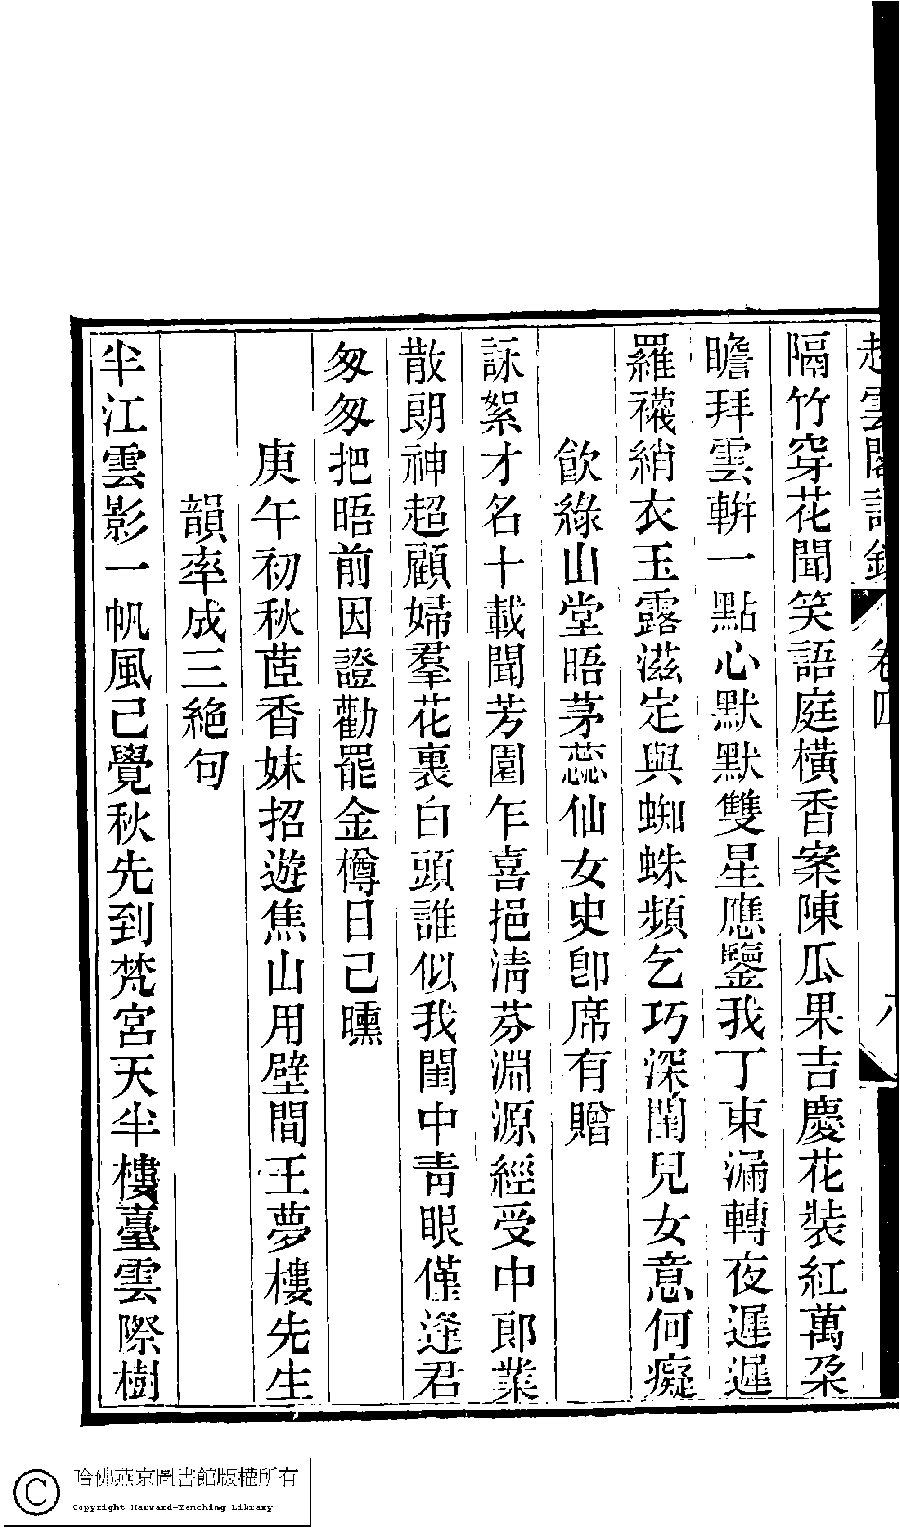 雲閣詩錄 卷四 八
隔竹穿花聞笑語庭橫香案陳瓜果吉慶花裝紅萬朶
瞻拜雲軿一點心默默雙星應鑒我丁東漏轉夜遲遲
羅襪綃衣玉露滋定與蜘蛛頻乞巧深閨兒女意何癡
飮綠山堂晤茅蕊仙女史卽席有贈
詠絮才名十載聞芳園乍喜挹淸芬淵源經受中郞業
散朗神超顧婦羣花裏白頭誰似我閨中靑眼僅逢君
匆匆把晤前因證勸罷金樽日己曛
庚午初秋茝香妹招遊焦山用壁間王夢樓先生
韻率成三絶句
半江雲影一帆風己覺秋先到梵宮天半樓臺雲際樹
哈佛燕京圖書館版權所有
Copyright Harvard-Yenching Library